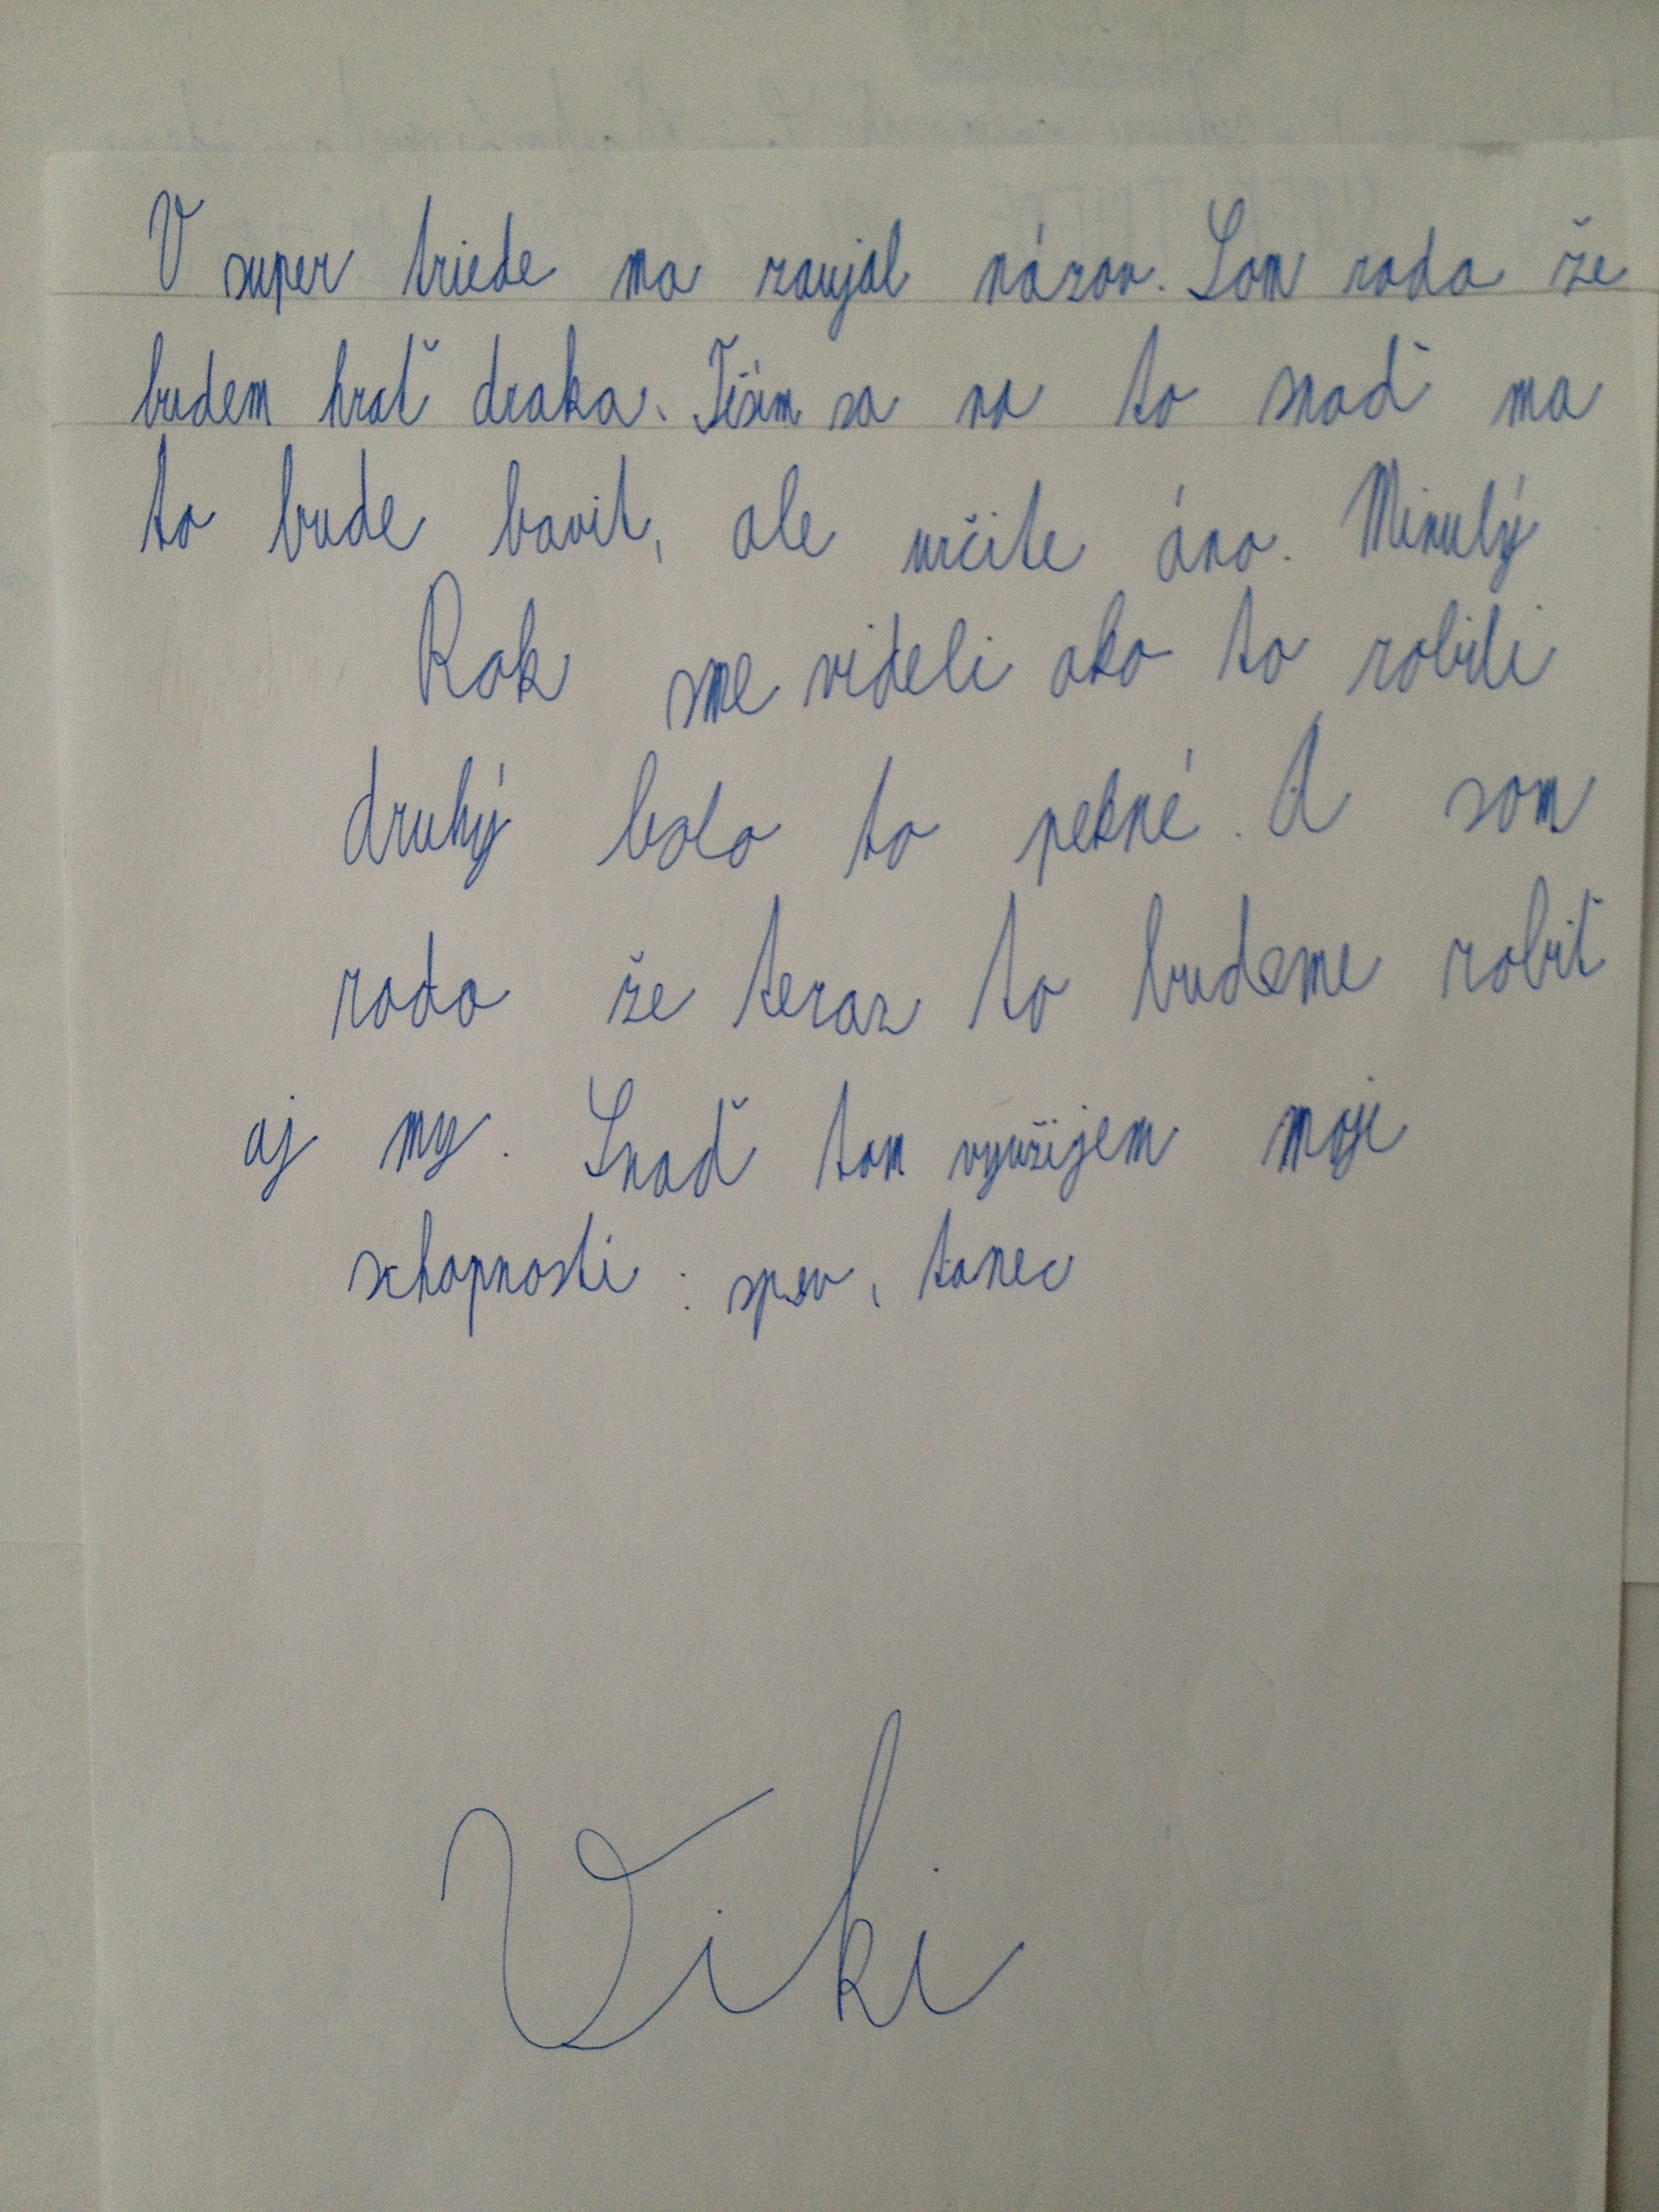 V super triede ma zaujal názov. Som rada že
budem hrať draka. Teším sa na to snaď ma
to bude bavit, ale určite áno. Minulý
Rok sme videli ako to robili
druhý bolo to pekné. A som
rada že teraz to budeme robiť
aj my. Snaď tam využijem moje
schopnosti: spev, tanec
Viki